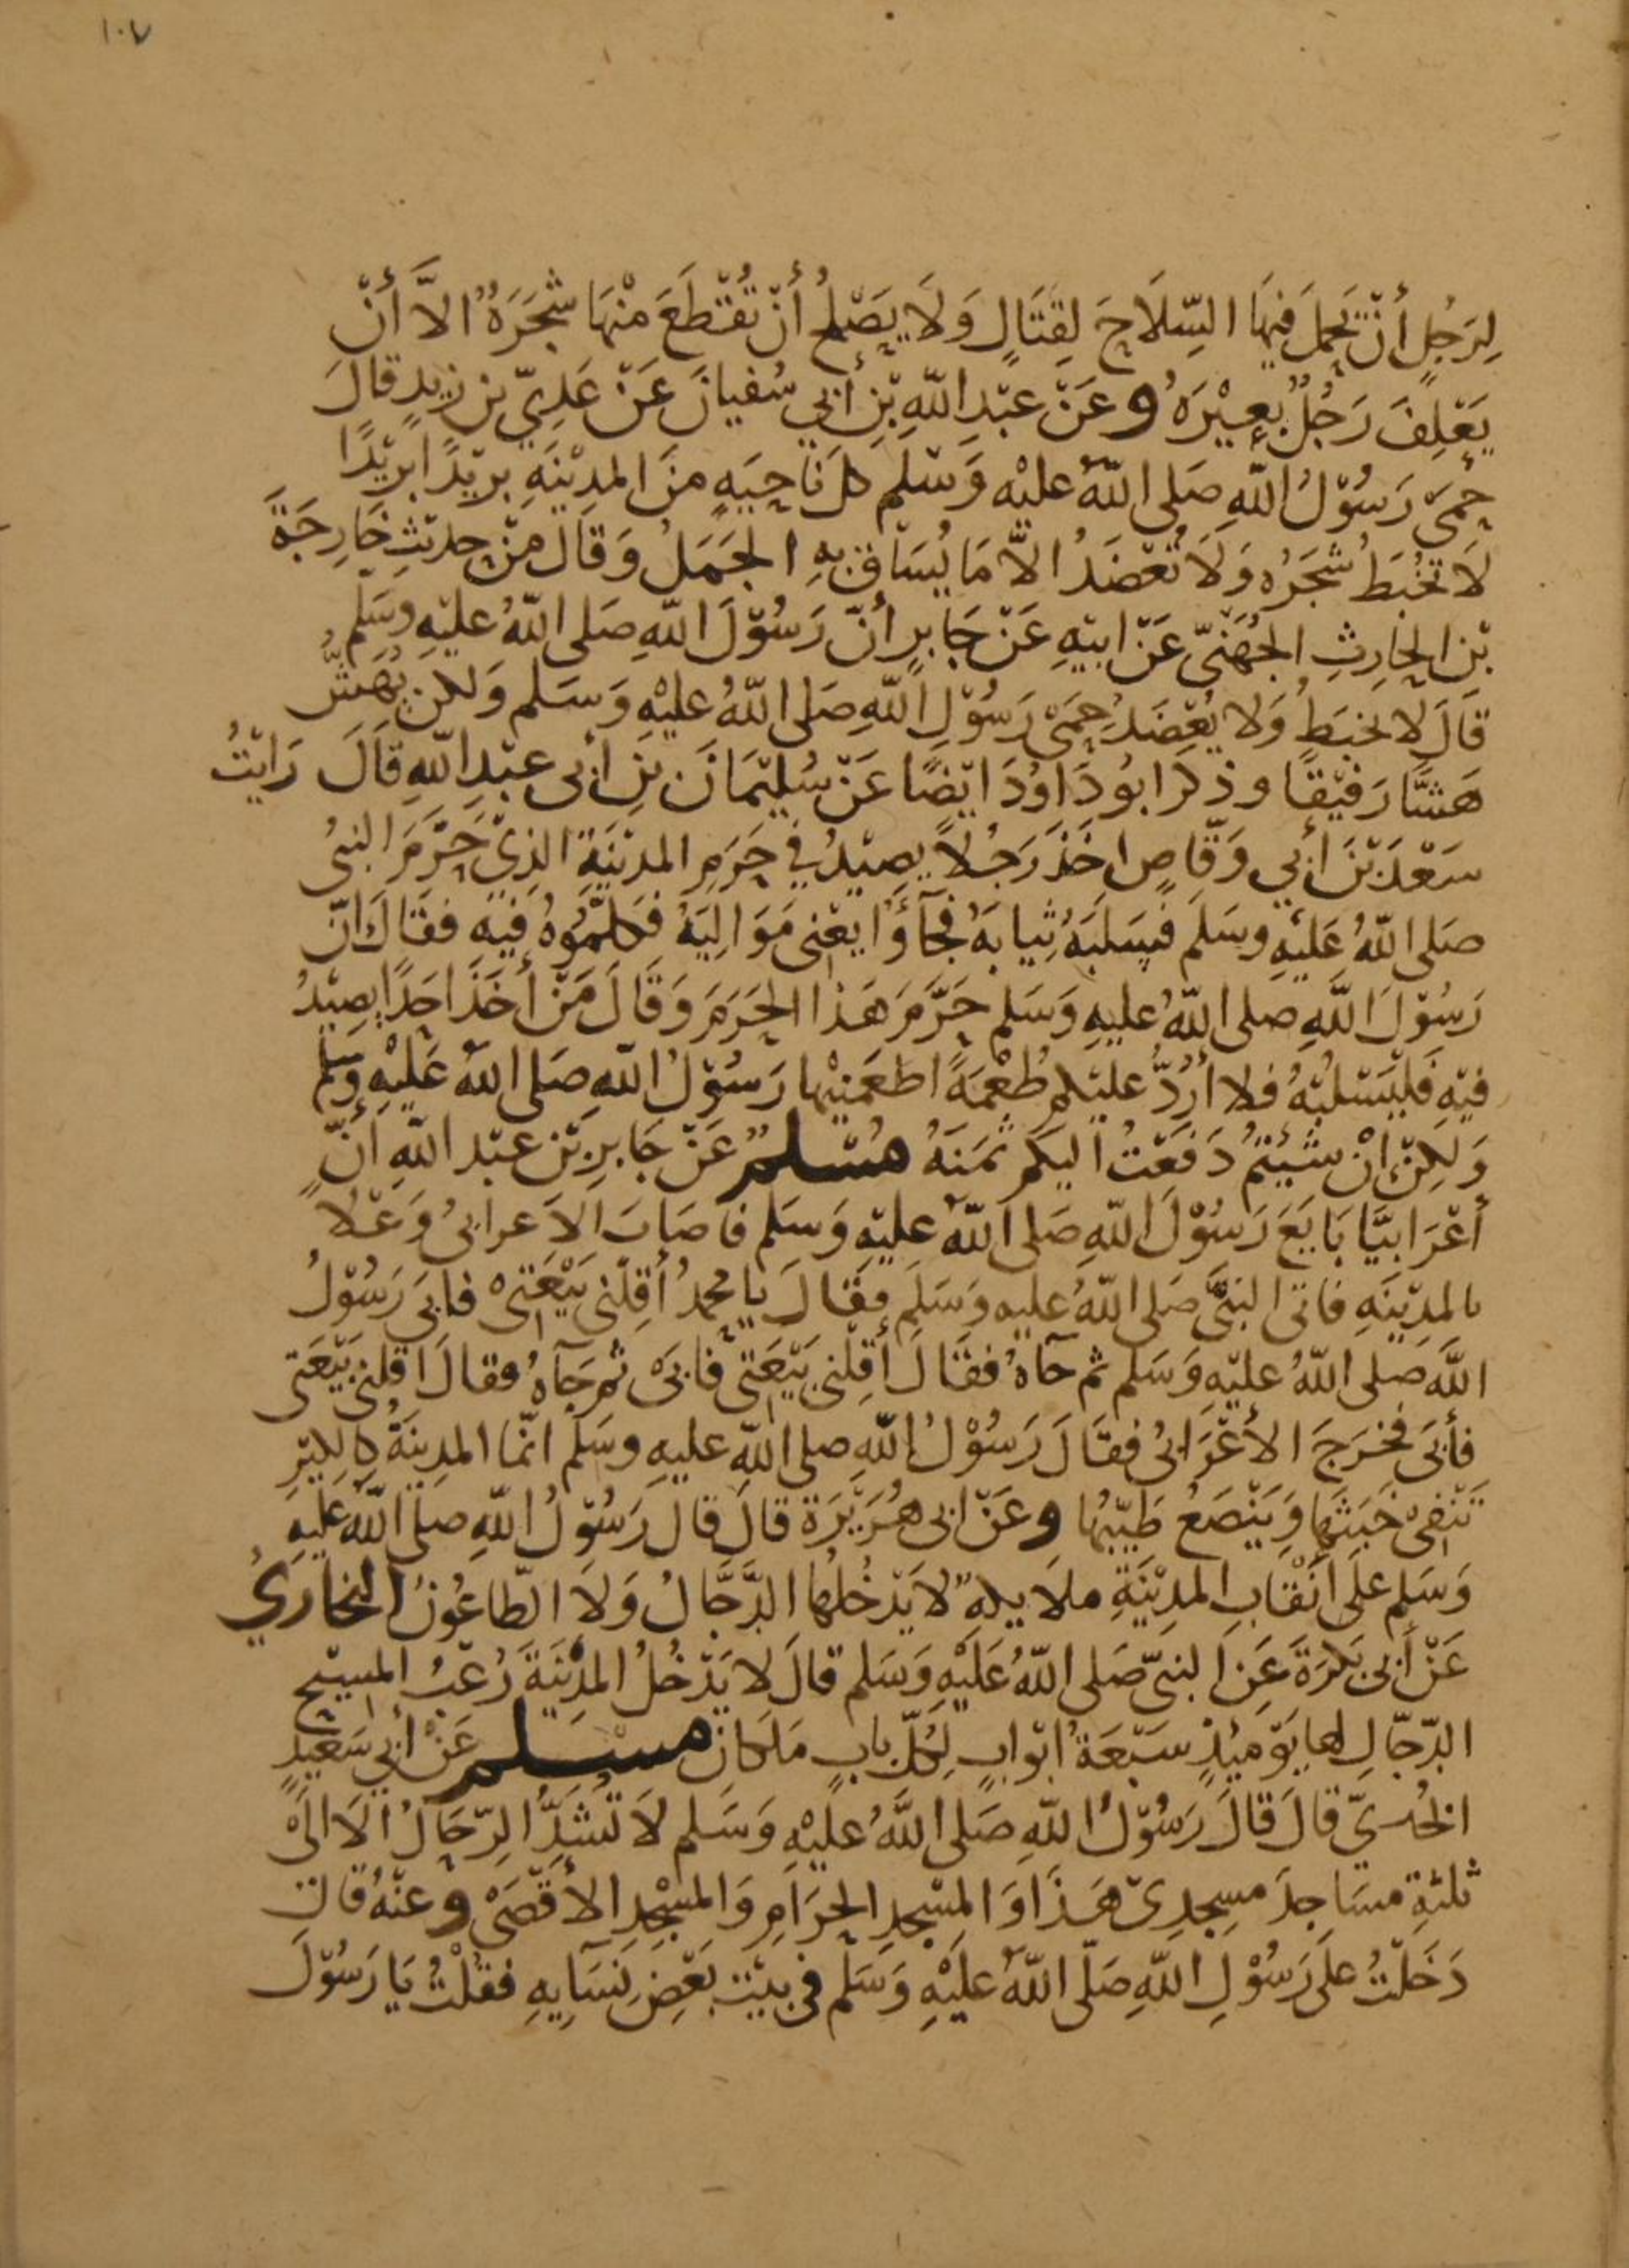 ١٠٧
لِرَجُلٍ أَنْ يَحْمِلَ فِيهَا السِّلَاحَ لِقِتَالٍ وَلَا يَصْلُحُ أَنْ تُقْطَعَ مِنْهَا شَجَرَةٌ الاَّ أَنْ
يَعْلِفَ رَجُلٌ بَعِيْرَهُ وعَنْ عَبْدِ اللّهِ بْنِ أبي سُفيانَ عَنْ عَدِيّ بن زيدٍ قالَ
حِمَى رَسُوْلُ اللّهِ صَلى اللّهُ عليْه وَسَلم كل نَاحِيَهٍ منَ المدِيْنَهِ بريْدًا بريْدًا
لَا تخْبَطُ شَجَرُه وَلَا تُعْضَدُ الاَّ مَا يُسَاق بهِ الجَمَلُ وَقَالَ منْ حدِيْثِ خَارِجَةَ
بْن الحارِثِ الجُهَنيّ عَنْ ابيْهِ عَنْ جَابرٍ أنّ رَسُوْلَ اللّهِ صَلى اللّهُ عليْهِ وسَلم
قَالَ لا يخبَطُ وَلا يُعْضَدُ حِمَى رَسُوْلِ اللّهِ صَلى اللّهُ عليْهِ وَسَلم وَلكن يُهَشُّ
هَشًّا رَفيْقًا وذكَرَ ابُو دَاوُدَ ايْضًا عَنْ سُليْمَانَ بنِ ابى عبْدِ اللّهِ قَالَ رَايْتُ
سَعْدَ بْنَ أبي وَقّاصٍ اخَذَ رَجُلاً يصِيْدُ في حَرَمِ المدْيْنَةِ الذِيْ حَرَّمَ النبىُ
صَلى اللّهُ عَليْهِ وسَلمَ فسَلبَهُ ثِيابَهُ فجَآؤُا يعْنى مَوَالِيَهُ فكلمُّوْهُ فيْهِ فقَالَ انّ
رَسُوْلَ اللّهِ صلى اللّهُ عليهِ وَسَلم حَرَّمَ هَذا الحَرَمَ وَقَالَ مَنْ أخَذَ احَدًا يصِيْدُ
فيْهِ فَليَسْلبْهُ فلا أرُدُّ عليْكم طُعْمَةً اطعَمَنِيْها رَسُوْلُ اللّهِ صَلى اللّهُ عَليْهِ وَسَلم
وَلكِنْ انْ شِئْتُمْ دَفَعْتُ اليكُمْ ثمَنَهُ مُسْلمٌ عَنْ جَابرِ بْن عبْد اللّهِ أنّ
أعْرَابيًّا بَايَعَ رَسُوْلَ اللّهِ صَلى اللّهُ عليْهِ وَسَلم فأصَابَ الاَعرابىُ وَعْكٌ
بالمدِيْنَهِ فاتى النبىَّ صَلى اللّهُ عليه وَسَلمَ فقَالَ يا محمدُ أقِلْنى بَيْعَتىْ فابىَ رَسُوْلُ
اللّهِ صَلى اللّهُ عليْهِ وَسَلم ثم جآهُ فقَالَ أقِلْنى بَيْعَتى فابىَ ثم جَآهُ فقالَ اقِلنى بَيْعَتى
فأبىَ فخرَجَ الأعْرَابىُ فقَالَ رَسُوْلُ اللّهِ صلى اللّهُ عليهِ وسَلم انّما المدِينَةُ كَالكِيْرِ
تَنْفِىْ خَبَثَهَا وَيَنْصَعُ طَيّبُها وعَنْ ابى هُرَيْرَة قالَ قال رَسُوْلُ اللّهِ صلى اللّه عليْهِ
وَسَلم علَى أنْقَابِ المدِيْنَةِ ملايكهٌ لا يَدْخُلها الدَّجَّالُ وَلاَ الطّاعُونُ البخاريُ
عَنْ أبىْ بَكرَةَ عَنِ النبىّ صَلى اللّهُ عَليْهِ وَسَلم قالَ لا يَدْخُلُ المدِيْنَةَ رُعْبُ المسيْحِ
الدّجّالِ لها يَوْمَئِذٍ سَبْعَةُ ابْوابٍ لِكلّ بابٍ مَلكانِ مسْلم عَنْ أبي سَعْيدٍ
الخدريّ قالَ قَالَ رَسُوْلُ اللّهِ صَلى اللّهُ عليْهِ وَسَلم لاَ تُشدَّ الرّحَالُ الاَ الىْ
ثلثةِ مسَاجدَ مسجِدِىْ هَذَا وَالمسْجدِ الحرَامِ وَالمسْجدِ الأقْصَىْ وعنْهُ قالَ
دَخَلْتُ على رَسُوْلِ اللّهِ صَلّى اللّهُ عليْهِ وَسَلم في بيْتِ بَعْضِ نِسَآيهِ فقُلْتُ يَا رَسُوْلَ